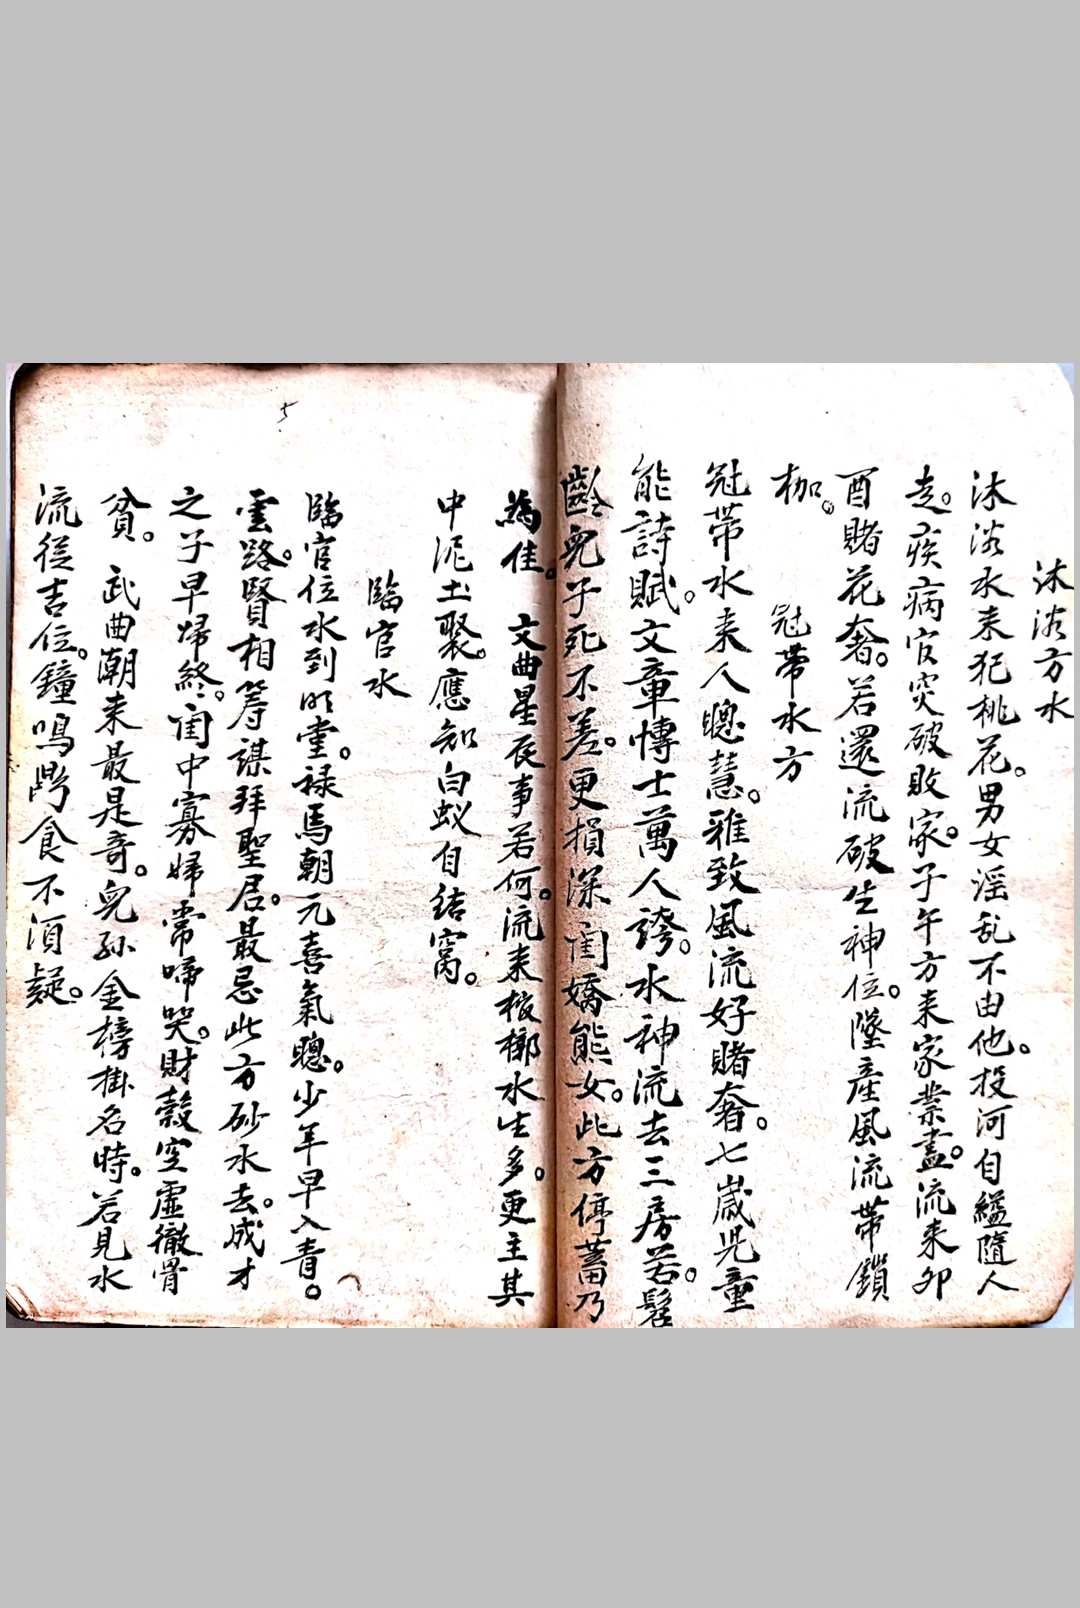 沐浴方水
沐浴水来犯桃花。男女淫乱不由他。投河自縊隨人
走。疾病官灾破敗家。子午方来家業盡。流来卯
酉賭花奢。若還流破生神位。墜產風流带鎖
枷。
冠带水方
冠带水来人聰慧。雅致風流好賭奢。七歲児童
能詩賦。文章博士萬人誇。水神流去三房若。髫
齡兒子死不差。更損深闺嬌態女。此方停蓄乃
為佳。 文曲星辰事若何。流来棺槨水生多。更主其
中泥土聚。應知白蚁自結窩。
臨官水
臨官位水到明堂。禄馬朝元喜氣聰。少年早入青。
雲路。賢相筹謀拜聖居。最忌此方砂水去。成才
之子早归終。闺中寡婦常啼哭。財穀空虛徹骨
貧。 武曲潮来最是奇。兒孙金榜掛名時。若見水
流從吉位。鐘鳴鼎食不須疑。
5